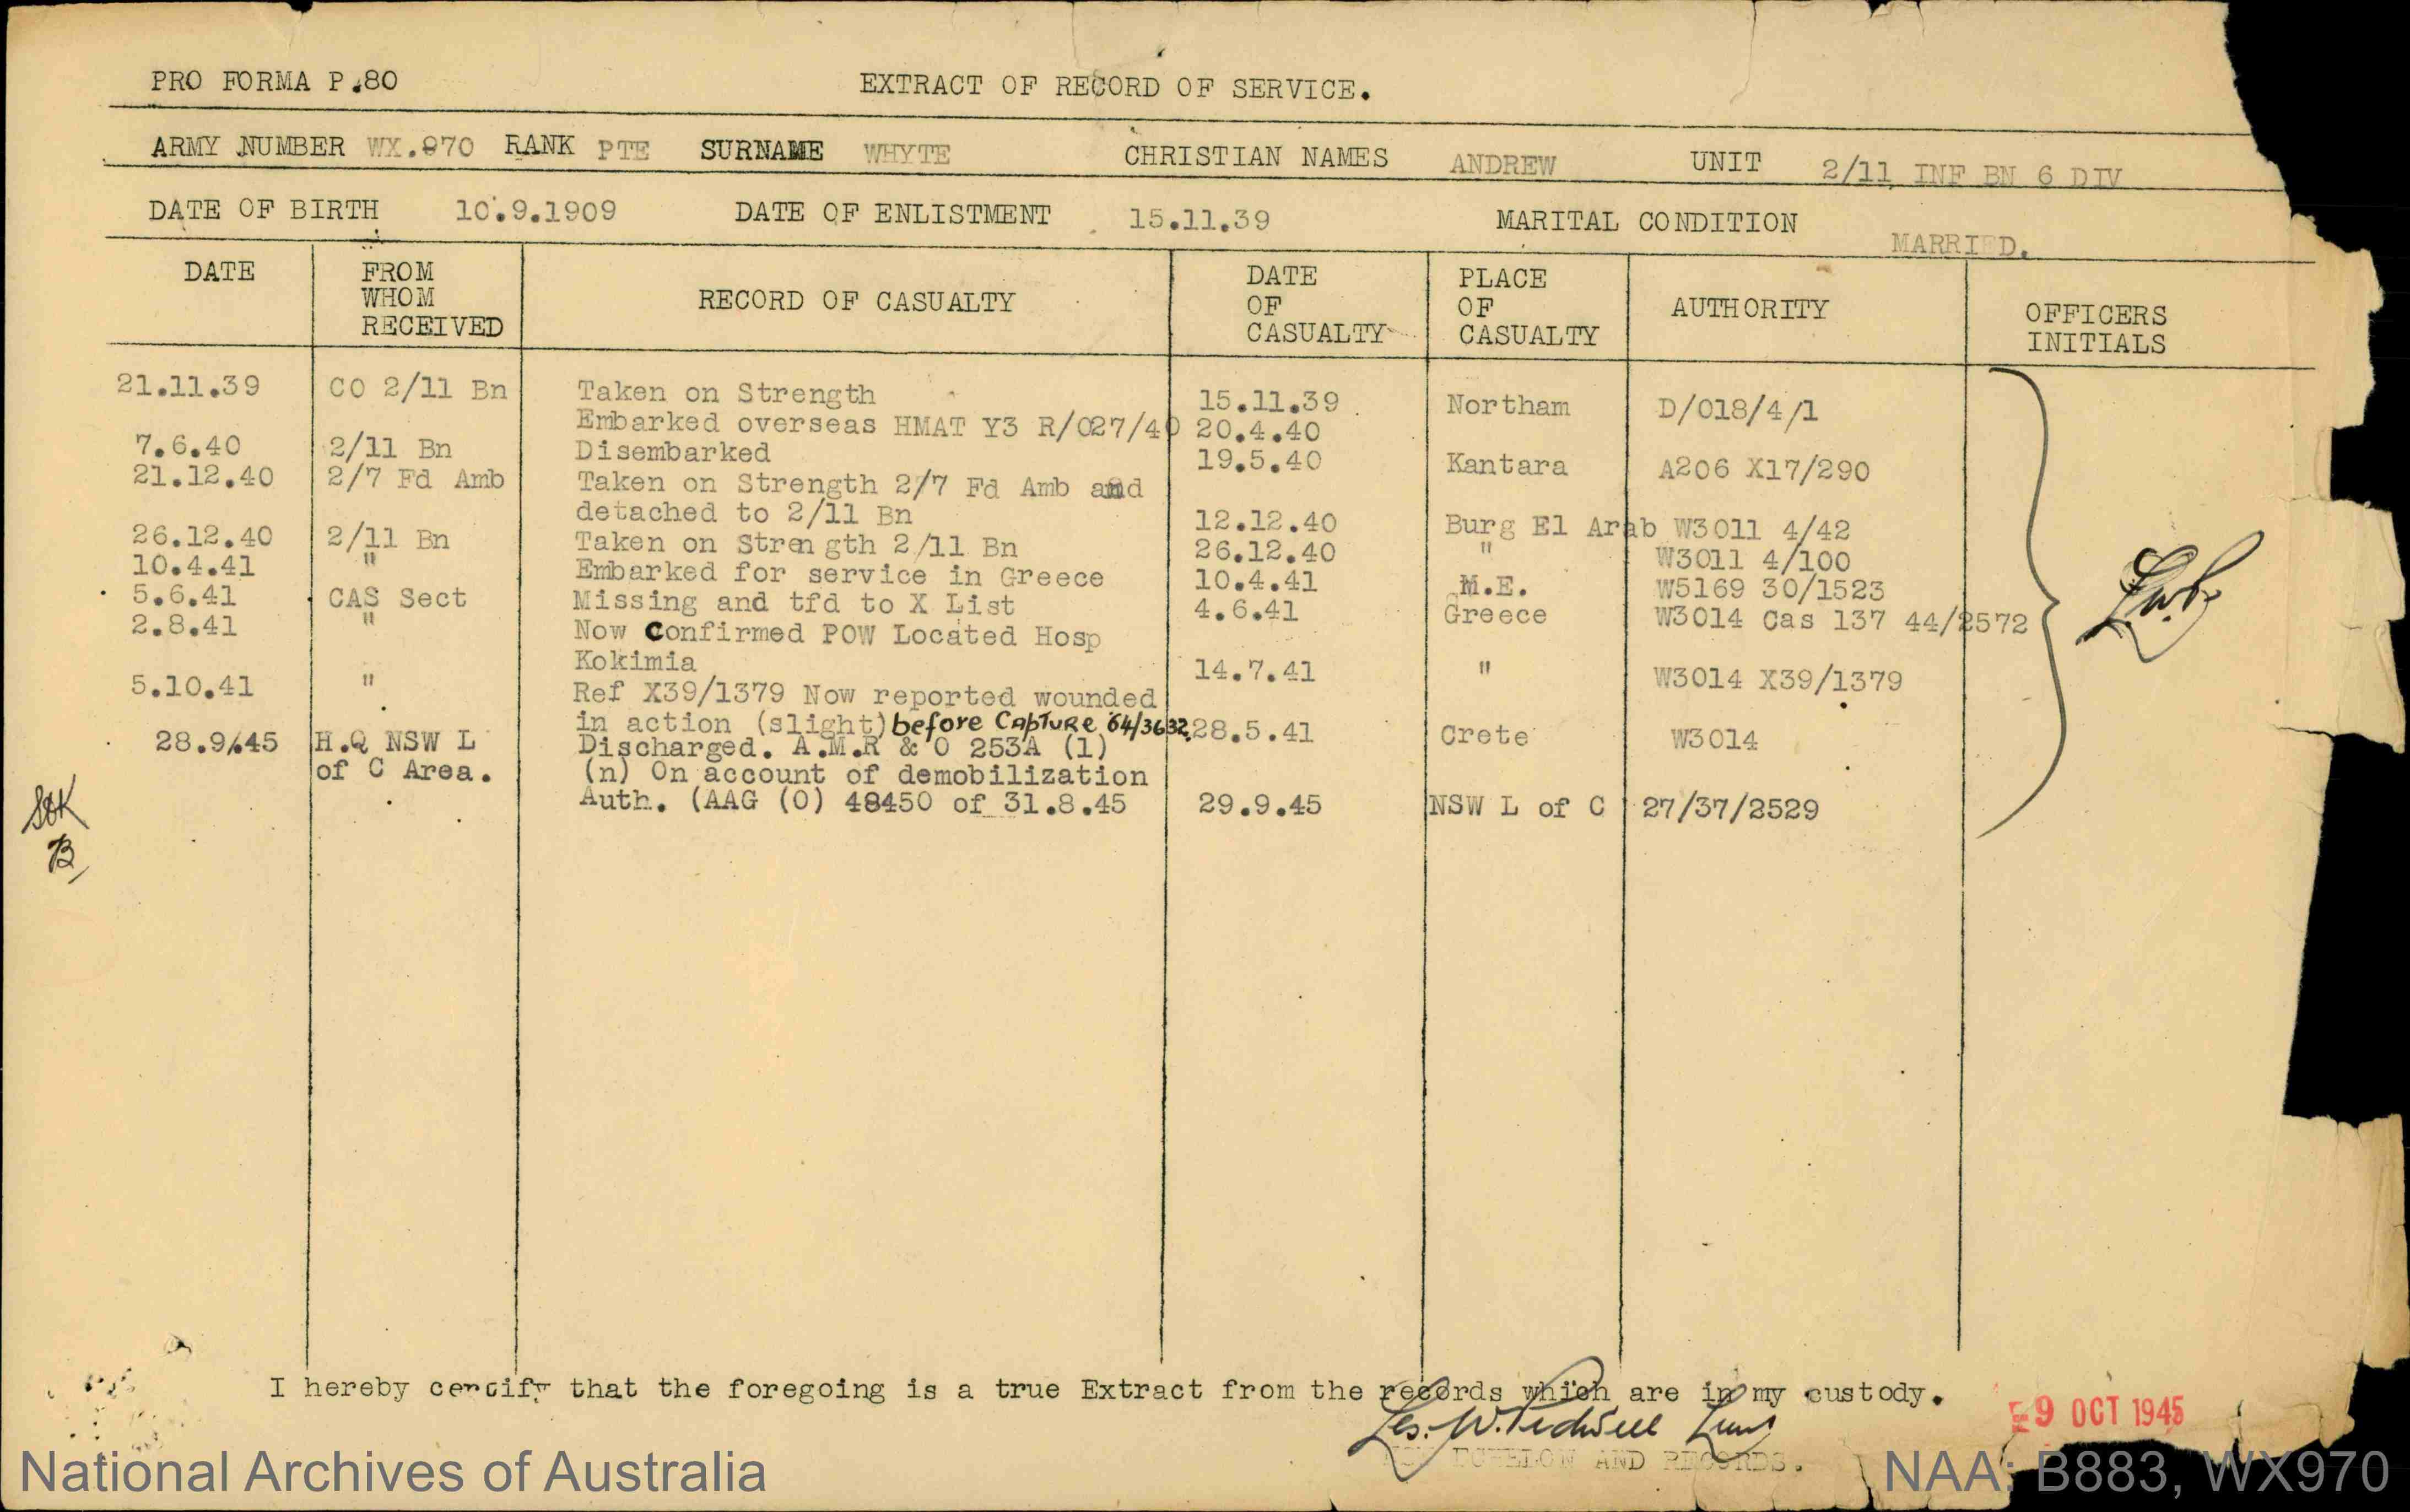 PRO FORMA P.80
EXTRACT OF RECORD OF SERVICE.
ARMY NUMBER WX.970 RANK PTE SURNAME WHYTE CHRISTIAN NAMES ANDREW UNIT 2/11 INF BN 6 DIV
DATE OF BIRTH 10.9.1909 DATE OF ENLISTMENT 15.11.39 MARITAL CONDITION MARRIED.
DATE FROM WHOM RECEIVED RECORD OF CASUALTY DATE OF CASUALTY PLACE OF CASUALTY AUTHORITY OFFICERS INITIALS
21.11.39 CO 2/11 Bn Taken on Strength 15.11.39 Northam D/018/4/1
Embarked overseas HMAT Y3 R/027/40 20.4.40
7.6.40 2/11 Bn Disembarked 19.5.40 Kantara A206 X17/290
21.12.40 2/7 Fd Amb Taken on Strength 2/7 Fd Amb and
detached to 2/11 Bn 12.12.40 Burg El Arab W3011 4/42
26.12.40 2/11 Bn Taken on Stren gth 2/11 Bn 26.12.40 " W3011 4/100
10.4.41 " Embarked for service in Greece 10.4.41 M.E. W5169 30/1523
5.6.41 CAS Sect Missing and tfd to X List 4.6.41 Greece W3014 Cas 137 44/2572
2.8.41 " Now Confirmed POW Located Hosp
Kokimia 14.7.41 " W3014 X39/1379
5.10.41 " Ref X39/1379 Now reported wounded
in action (slight) before Capture 64/3632 28.5.41 Crete W3014
28.9.45 H.Q NSW L Discharged. A.M.R & O 253A (1)
of C Area. (n) On account of demobilization
Auth. (AAG (O) 48450 of 31.8.45 29.9.45 NSW L of C 27/37/2529
I hereby certify that the foregoing is a true Extract from the records which are in my custody.
Les. W. Tidwell Lieut
ECHELON AND RECORDS.
9 OCT 1945
National Archives of Australia
NAA: B883, WX970